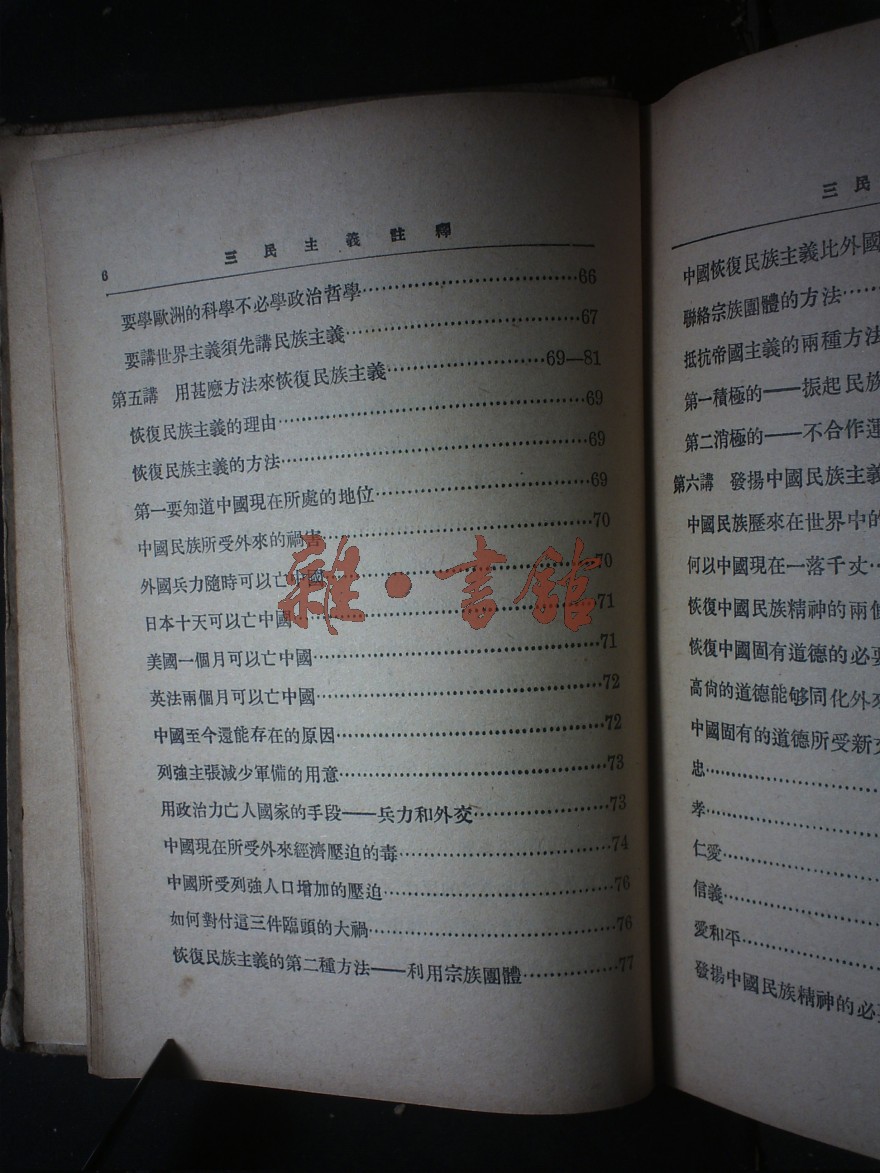 6
三民主義註釋
要學歐洲的科學不必學政治哲學……………………66
要講世界主義須先講民族主義……………………67
第五講 用甚麽方法來恢復民族主義……………69—81
恢復民族主義的理由……………………………69
恢復民族主義的方法……………………………69
第一要知道中國現在所處的地位……………………69
中國民族所受外來的禍害…………………………70
外國兵力隨時可以亡中國…………………………70
日本十天可以亡中國……………………………71
美國一個月可以亡中國……………………………71
英法兩個月可以亡中國……………………………72
中國至今還能存在的原因…………………………72
列強主張減少軍備的用意…………………………73
用政治力亡人國家的手段——兵力和外交……………73
中國現在所受外來經濟壓迫的毒……………………74
中國所受列強人口增加的壓迫………………………76
如何對付這三件臨頭的大禍…………………………76
恢復民族主義的第二種方法——利用宗族團體…………77
三民
中國恢復民族主義比外國
聯絡宗族團體的方法……
抵抗帝國主義的兩種方法
第一積極的——振起民族
第二消極的——不合作運
第六講 發揚中國民族主義
中國民族歷來在世界中的
何以中國現在一落千丈…
恢復中國民族精神的兩個
恢復中國固有道德的必要
高尙的道德能够同化外來
中國固有的道德所受新文
忠……………
孝……………
仁愛…………
信義…………
愛和平………
發揚中國民族精神的必要
雜·書館